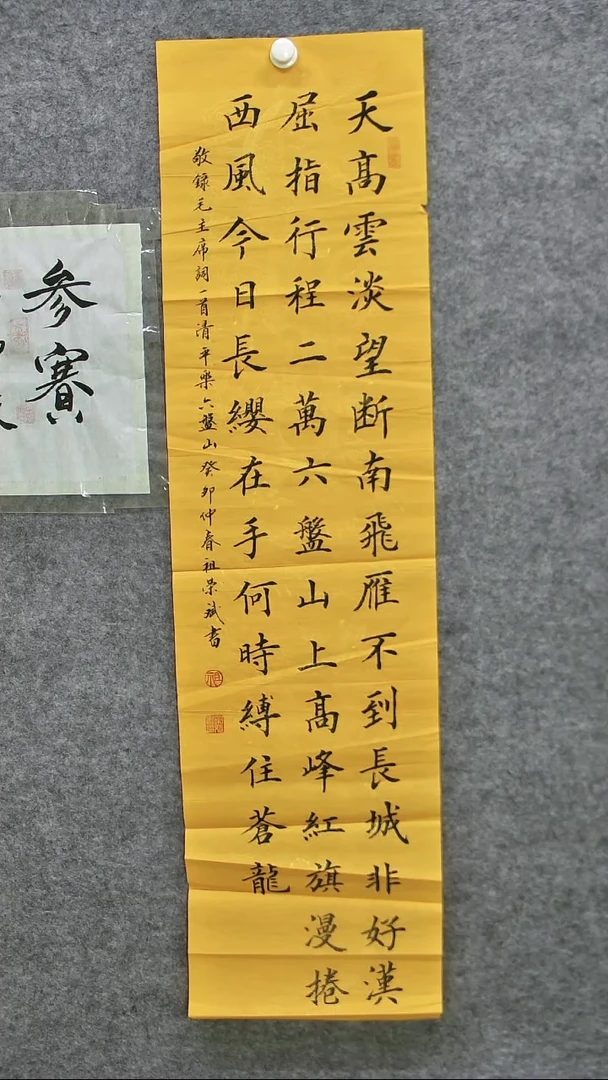 天髙雲淡望断南飛雁不到長城非好漢
屈指行程二萬六盤山上髙峰紅旗漫捲
西風今日長纓在手何時縛住蒼龍
敬錄毛主席詞一首清平樂六盤山癸卯仲春祖榮斌書
參賽